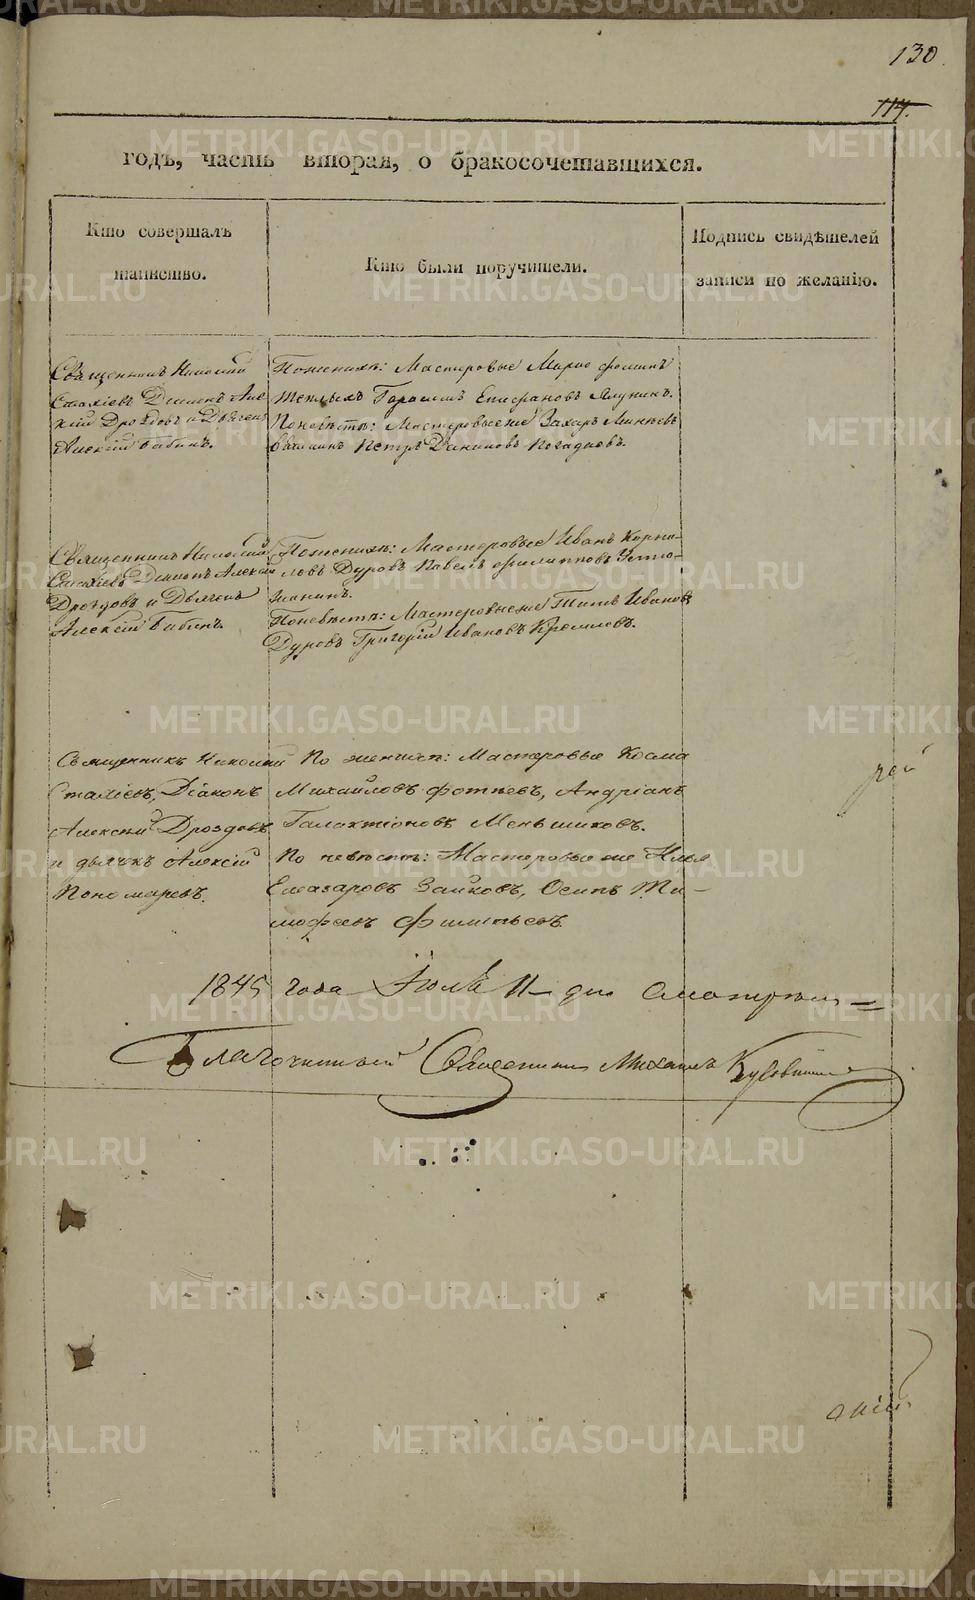 130
114.
годъ, часть вторая, о бракосочетавшихся.
Кто совершалъ
таинство.
Кто были поручители.
Подпись свидѣтелей
записи по желанію.
Священникъ Николай
Стахіевъ Діаконъ Але-
ксій Дроздовъ и Дьячекъ
Алексій Бабинъ.
По женихѣ: Мастеровые Марко Фоминъ
Теплыхъ Герасимъ Епифановъ
По невѣстѣ: Мастеровые же Захаръ
Петръ Данииловъ
Священникъ Николай
Стахіевъ Діаконъ Алексій
Дроздовъ и Дьячекъ
Алексій Бабинъ.
По женихѣ: Мастеровые Иванъ Корни-
ловъ Дуровъ Павелъ Филипповъ Устю-
жанинъ.
По невѣстѣ: Мастеровые же Титъ Ивановъ
Дуровъ Григорій Ивановъ
Священникъ Николай
Стахіевъ, Діаконъ
Алексій Дроздовъ
и дьячекъ Алексій
Пономаревъ.
По женихѣ: Мастеровые Косма
Михайловъ Фотѣевъ, Андріанъ
Галактіоновъ Меньшиковъ.
По невѣстѣ: Мастеровые же Илья
Елеазаровъ Зайковъ, Осипъ Ти-
мофеевъ
1845 года Іюля 11 дня
Благочинный Священникъ Михаилъ
METRIKI.GASO-URAL.RU